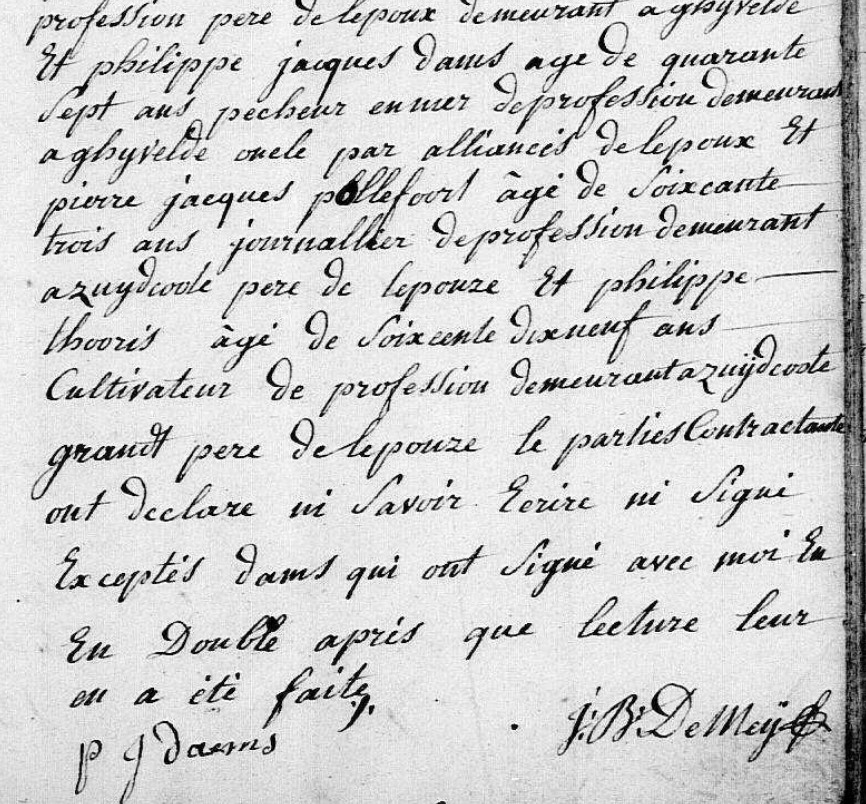 profession pere de lepoux demeurant a ghyvelde
Et philippe jacques dams age de quarante
Sept ans pecheur en mer de profession demeurant
a ghyvelde oncle par alliances de lepoux Et
pierre jacques pollefoort âgé de Soixcante
trois ans journallier de profession demeurant
a zuydcoote pere de lepouze Et philippe
thooris âgé de Soixcente dix neuf ans
Cultivateur de profession demeurant a zuÿdcoote
grandt pere de lepouze le parties Contractante
ont declare ni Savoir Ecrire ni Signé
Exceptés dams qui ont Signé avec moi En
En Double aprés que lecture leur
en a été faite
p J daems
J: B: De Meÿ